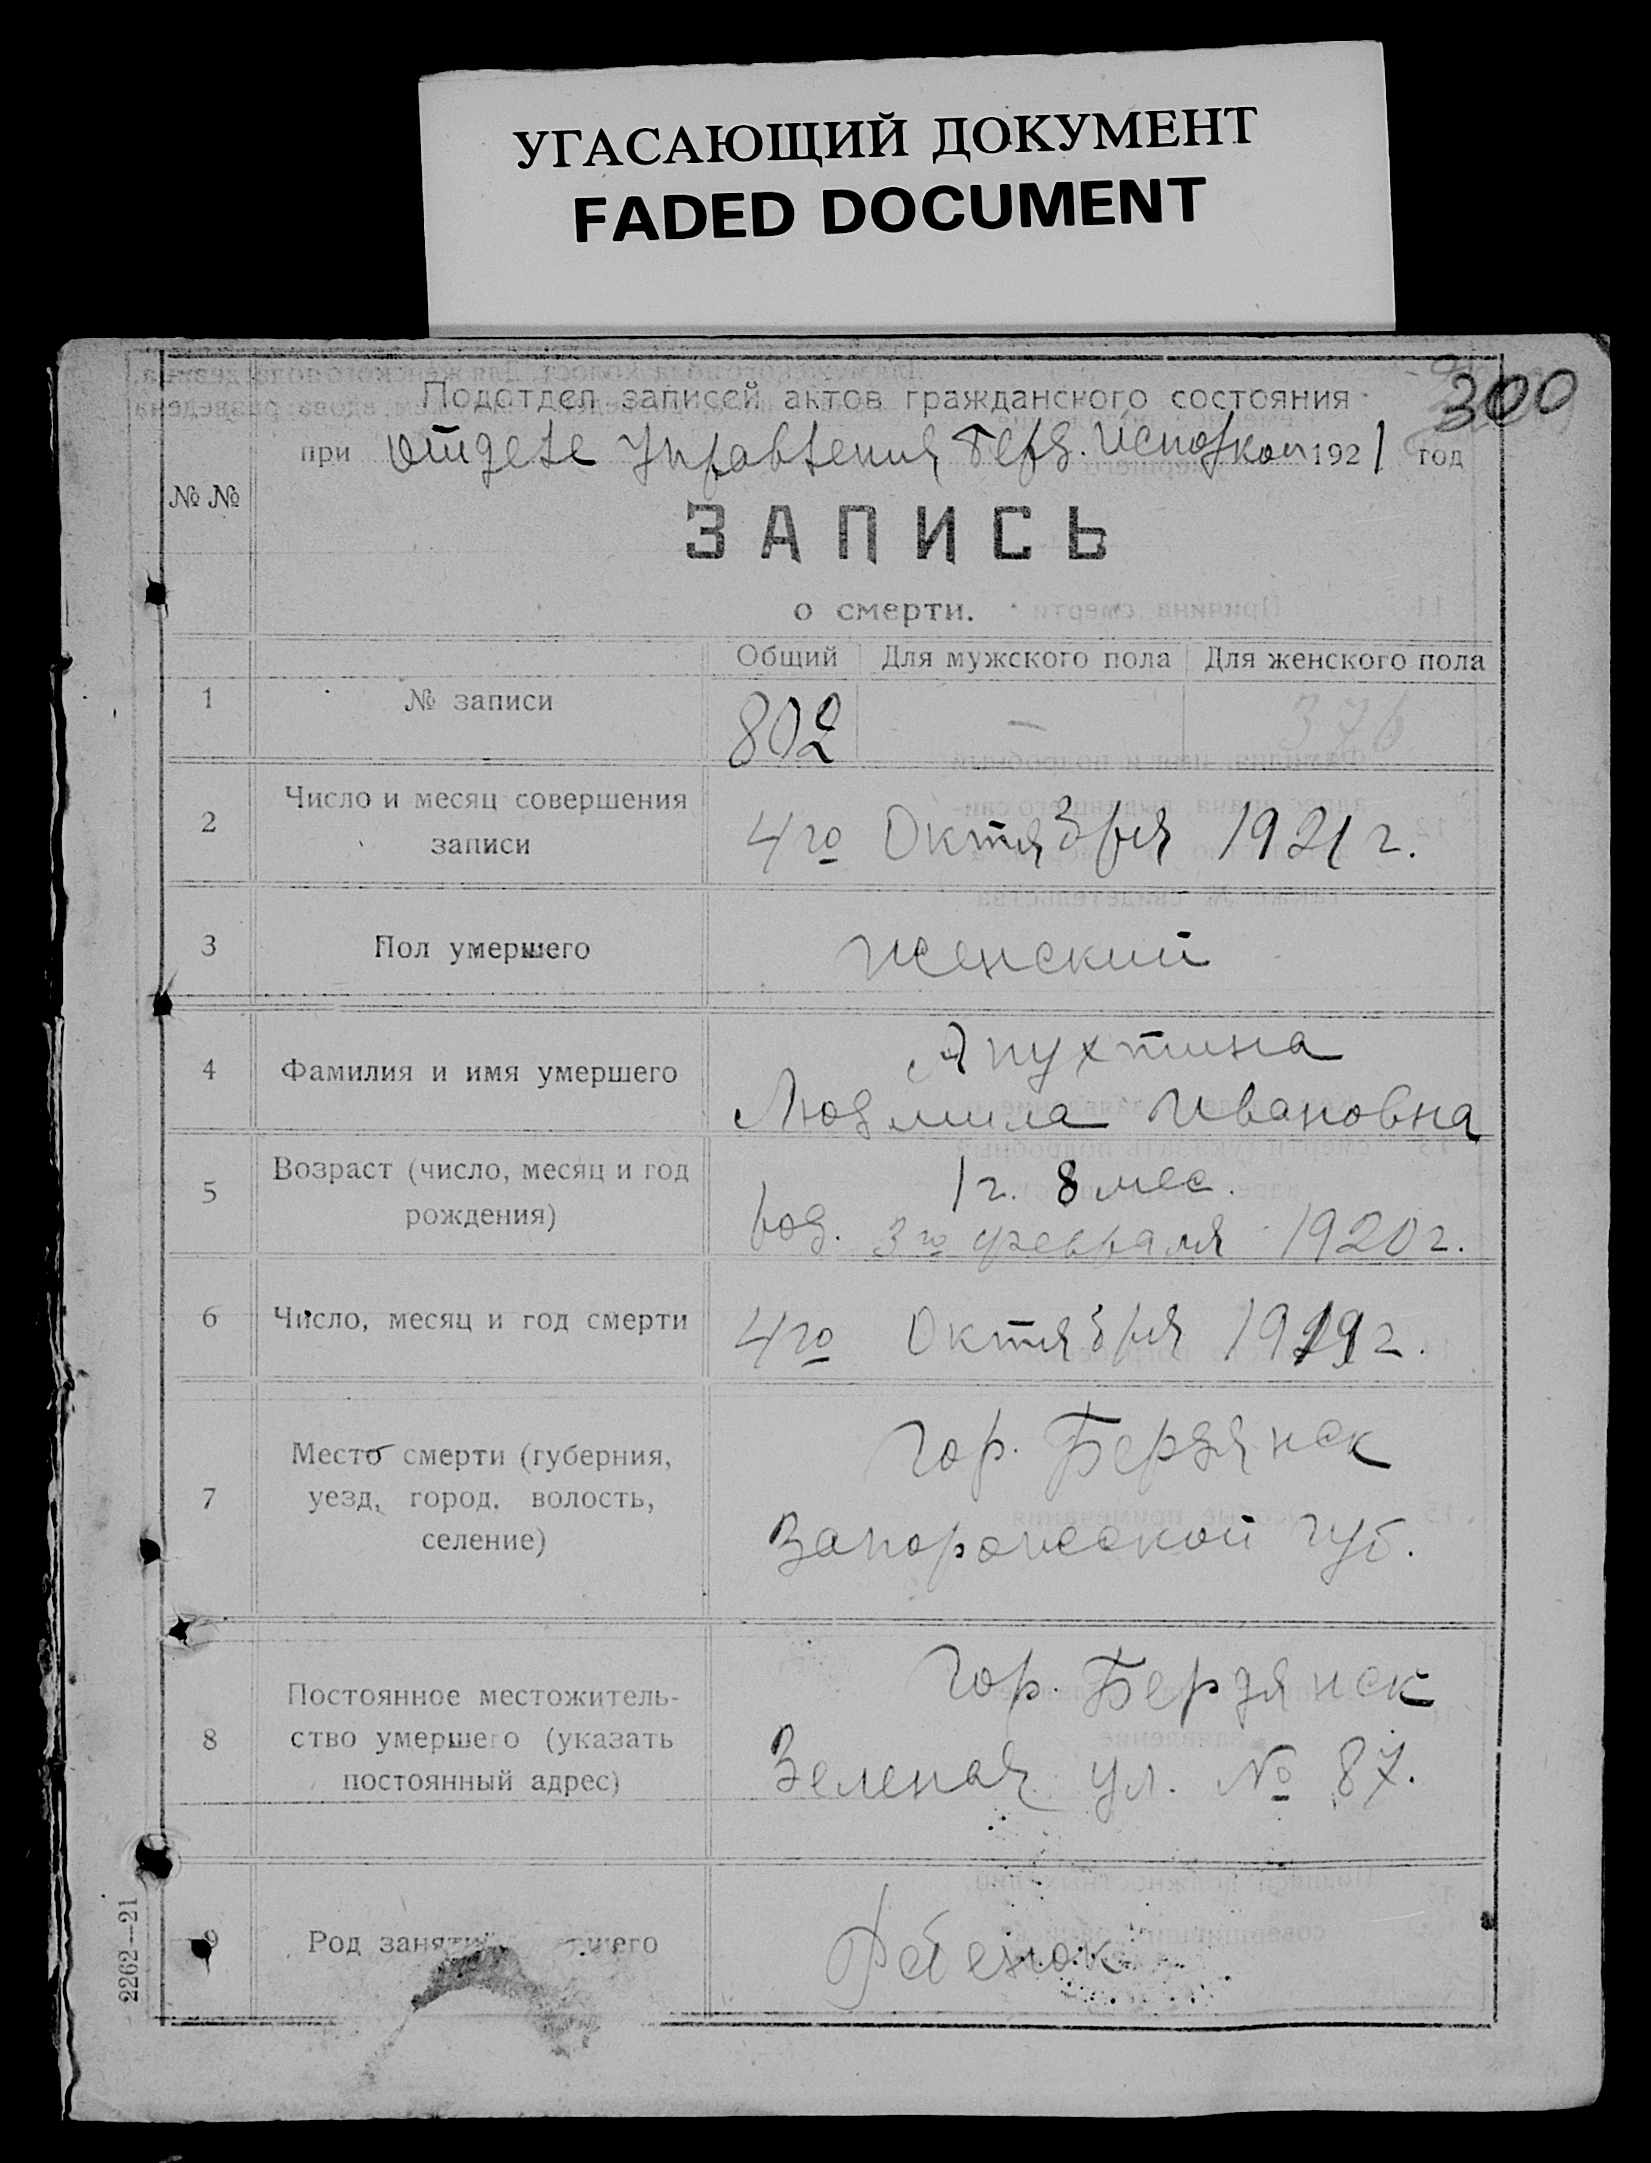 УГАСАЮЩИЙ ДОКУМЕНТ
FADED DOCUMENT
300
Подотдел записей актов гражданского состояния
при отделе Управления Берд. Исполком 1921 год
№ №
ЗАПИСЬ
о смерти.
Общий Для мужского пола Для женского пола
1 № записи 802 — 376
2 Число и месяц совершения
записи
4го Октября 1921 г.
3 Пол умершего Женский
4 Фамилия и имя умершего
Апухтина
Людмила Ивановна
5 Возраст (число, месяц и год
рождения)
1 г. 8 мес.
род. 3го февраля 1920 г.
6 Число, месяц и год смерти 4го Октября 1921 г.
7 Место смерти (губерния,
уезд, город, волость,
селение)
Гор. Бердянск
Запорожской губ.
8 Постоянное местожитель-
ство умершего (указать
постоянный адрес)
Гор. Бердянск
Зеленая ул. № 87.
9 Род
Ребенок
2262—21